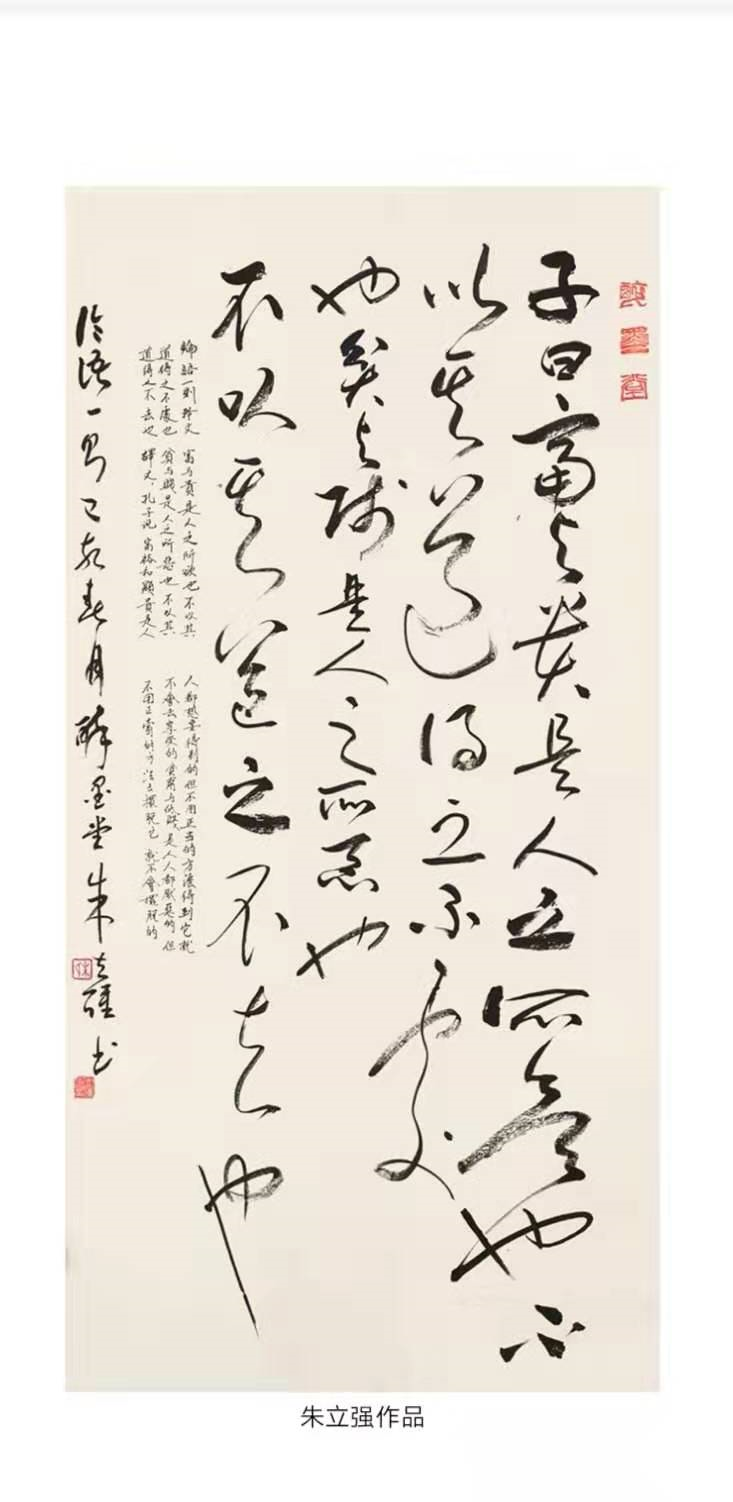 醉墨堂
子曰富与贵是人之所欲也不
以其道得之不处
也贫与贱是人之所恶也
不以其道之不去也
論語一则釋文 富与貴是人之所欲也不以其 人都想要得到的但不用正当的方法得到它就
道得之不處也 貧与賤是人之所惡也不以其 不會去享受的貧窮与低賤是人人都厭惡的但
道得之不去也 釋文，孔子说富裕和顯貴是人 不用正當的方法去擺脱它就不會擺脱的
论语一则己亥春月醉墨堂朱立强书
朱立强作品